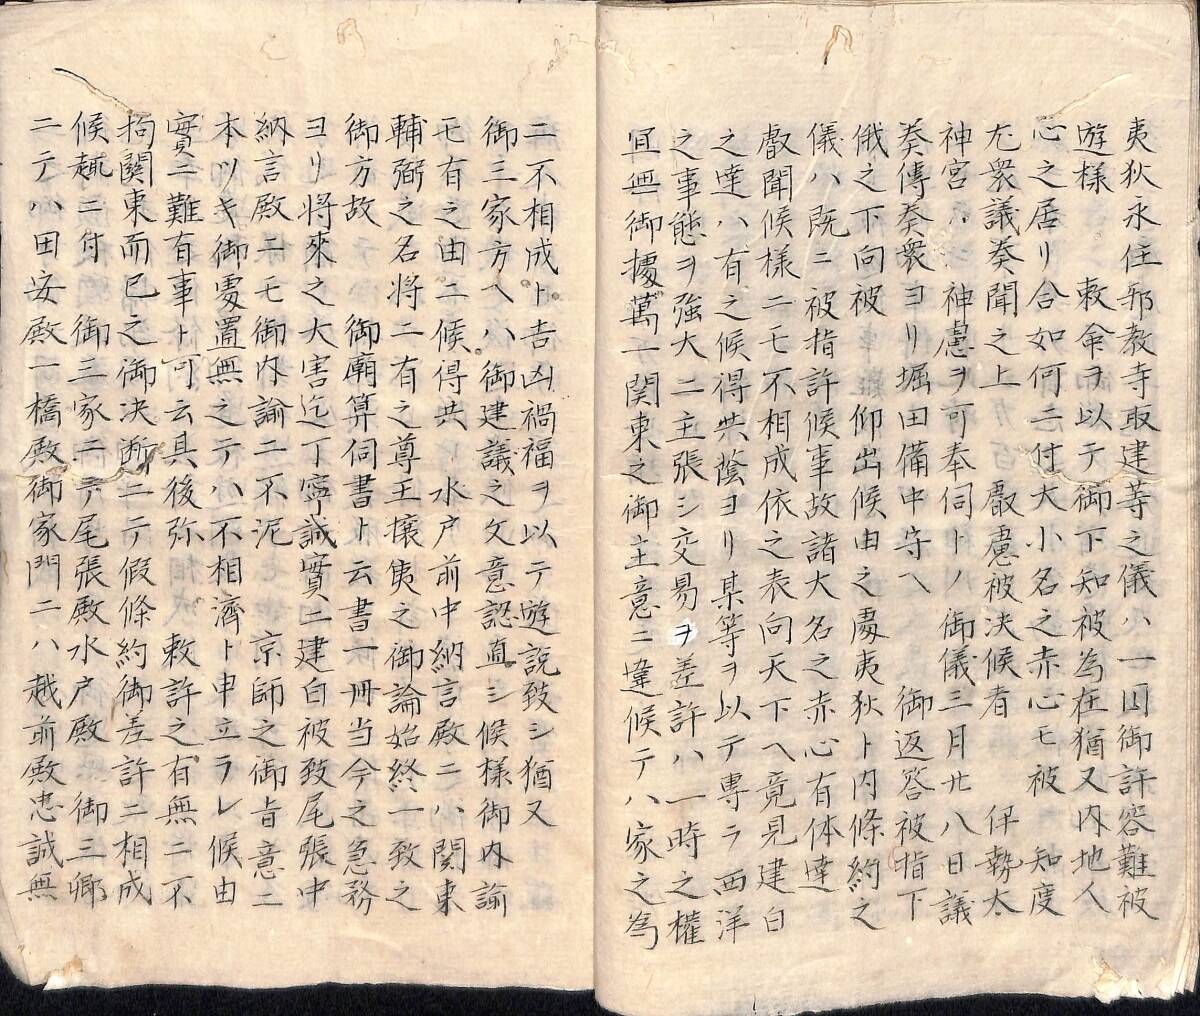 夷狄永住邪教寺取建等之儀ハ一円御許容難被
遊様　敕命ヲ以テ御下知被為在猶又内地人
心之居リ合如何ニ付大小名之赤心モ被　知度
尤衆議奏聞之上　叡慮被决候者　伊勢太
神宮ハシ神慮ヲ可奉伺トノ御儀三月廿八日議
奏傳奏衆ヨリ堀田備中守ヘ　御返答被指下
俄之下向被　仰出候由之處夷狄ト内條約之
儀ハ既ニ被指許候事故諸大名之赤心有体達
叡聞候様ニモ不相成依之表向天下ヘ竟見建白
之達ハ有之候得共蔭ヨリ某等ヲ以テ専ラ西洋
之事態ヲ強大ニ主張シ交易ヲ差許ハ一時之權
宜無御據萬一関東之御主意ニ違候テハ家之為
ニ不相成ト吉凶禍福ヲ以テ遊説致シ猶又
御三家方ヘハ御建議之文意認直シ候様御内諭
モ有之由ニ候得共　水戸前中納言殿ニハ関東
輔弼之名将ニ有之尊王攘夷之御論始終一致之
御方故　御廟算伺書ト云書一冊当今之急務
ヨリ将來之大害迄丁寧誠實ニ建白被致尾張中
納言殿ニモ御内諭ニ不泥　京師之御旨意ニ
本ツキ御處置無之テハ不相濟ト申立ラレ候由
實ニ難有事ト可云具後弥　敕許之有無ニ不
拘関東而已之御决断ニテ假條約御差許ニ相成
候趣ニ付　御三家ニテ尾張殿水戸殿　御三卿
ニテハ田安殿一橋殿御家門ニハ越前殿忠誠無